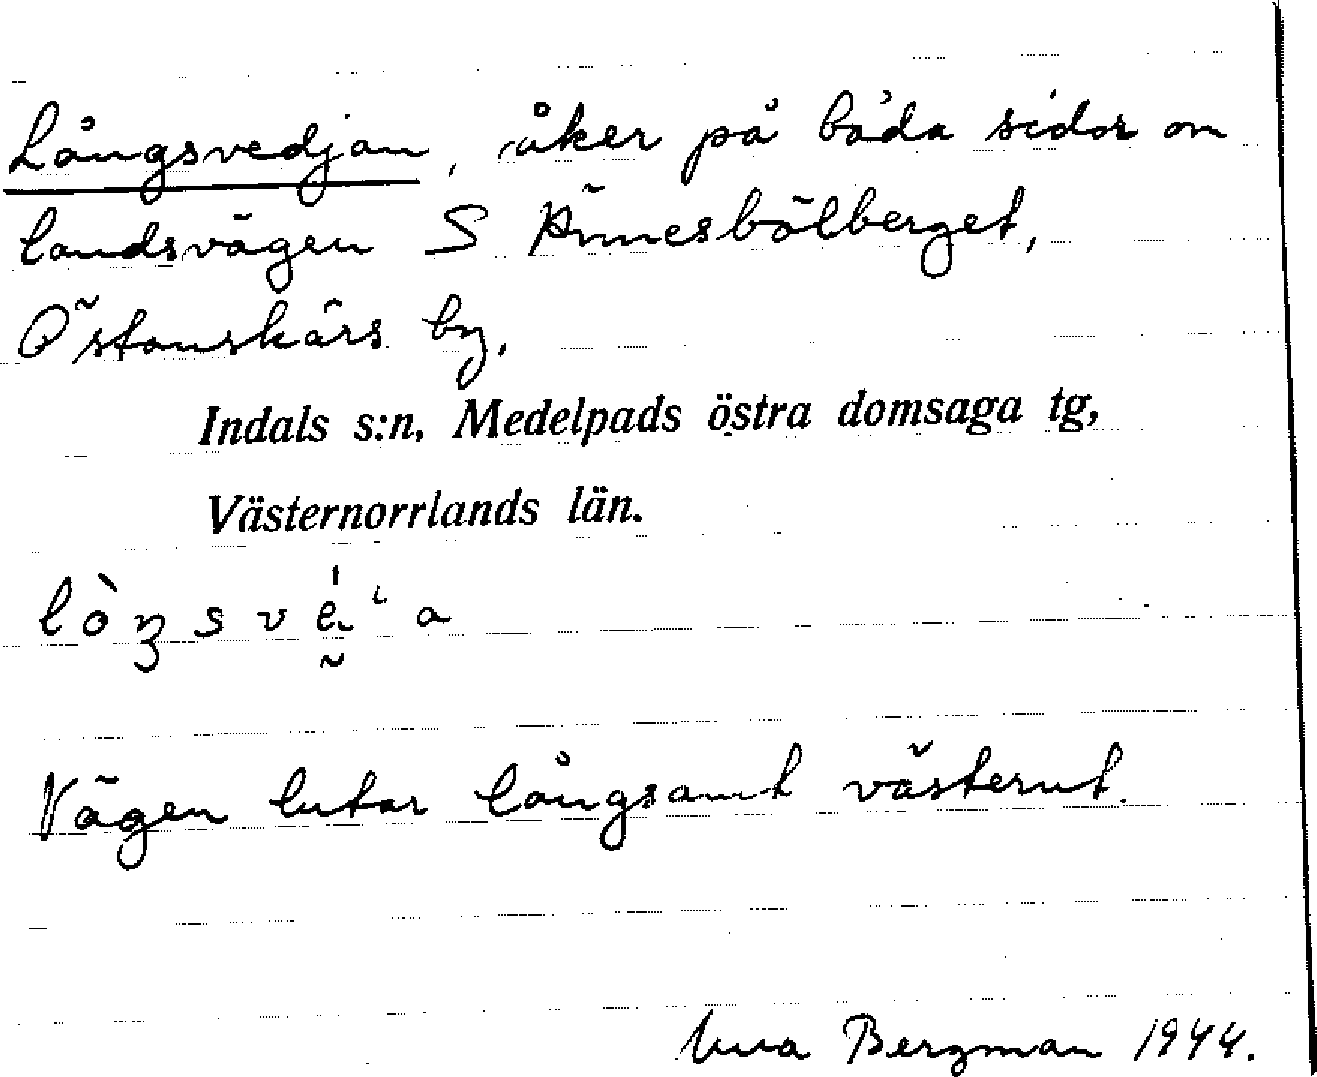 Långsvedjan, åker på båda sidor om
landsvägen S Ännesbölberget,
Östanskärs by.
Indals s:n, Medelpads östra domsaga tg,
Västernorrlands län.
Vägen lutar långsamt västerut.
Bergman 1944.